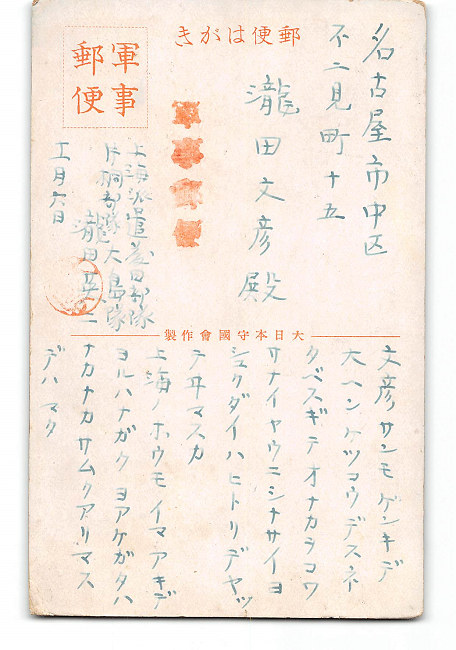 郵便はがき
軍事
郵便
軍事郵便
名古屋市中区
不二見町十五
瀧田文彦殿
上海派遣
部隊
片桐部隊大島隊
瀧田
工月六日
大日本守國會作製
文彦サンモゲンキデ
大ヘンケツコウデスネ
タベスギテオナカヲコワ
サナイヤウニシナサイヨ
シュクダイハヒトリデヤツ
テヰマスカ
上海ノホウモイマアキデ
ヨルハナガクヨアケガタハ
ナカナカサムクアリマス
デハマタ